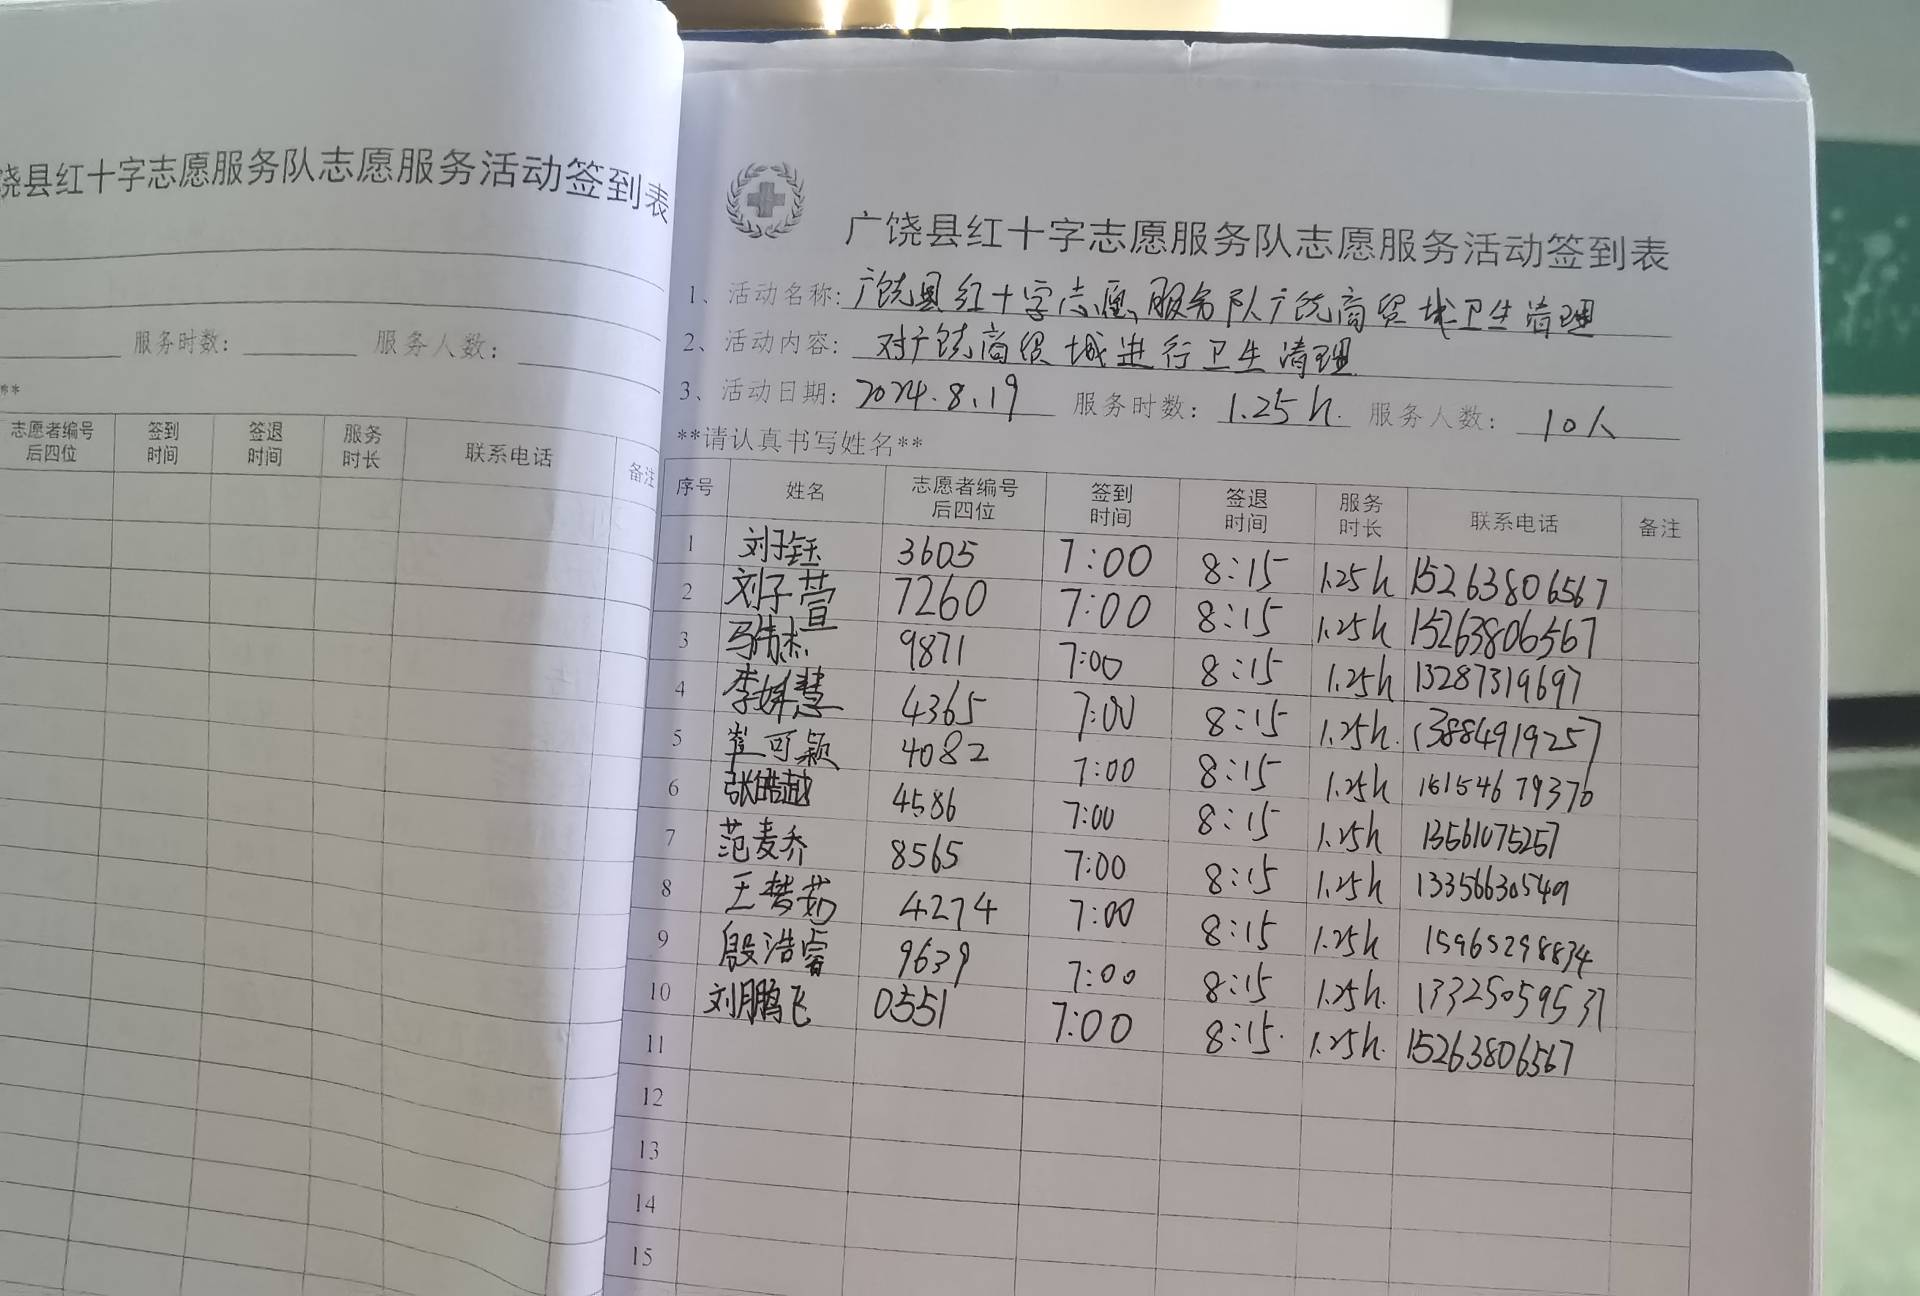 饶县红十字志愿服务队志愿服务活动签到表
服务时数： 服务人数：
**
志愿者编号后四位 签到时间 签退时间 服务时长 联系电话 备注
广饶县红十字志愿服务队志愿服务活动签到表
1、活动名称：广饶县红十字志愿服务队广饶商贸城卫生清理
2、活动内容：对广饶商贸城进行卫生清理
3、活动日期：2024.8.19 服务时数：1.25h. 服务人数：10人
**请认真书写姓名**
序号 姓名 志愿者编号后四位 签到时间 签退时间 服务时长 联系电话 备注
1 刘子钰 3605 7:00 8:15 1.25h 15263806567
2 刘子萱 7260 7:00 8:15 1.25h 15263806567
3 马伟杰 9871 7:00 8:15 1.25h 13287319697
4 李姝慧 4365 7:00 8:15 1.25h. 13884919257
5 崔可颖 4082 7:00 8:15 1.25h 15154679370
6 张皓越 4586 7:00 8:15 1.25h 13561075257
7 范麦乔 8565 7:00 8:15 1.25h 13356630549
8 王梦茹 4274 7:00 8:15 1.25h 15965298834
9 殷浩睿 9639 7:00 8:15 1.25h. 13325059537
10 刘鹏飞 0551 7:00 8:15. 1.25h. 15263806567
11
12
13
14
15